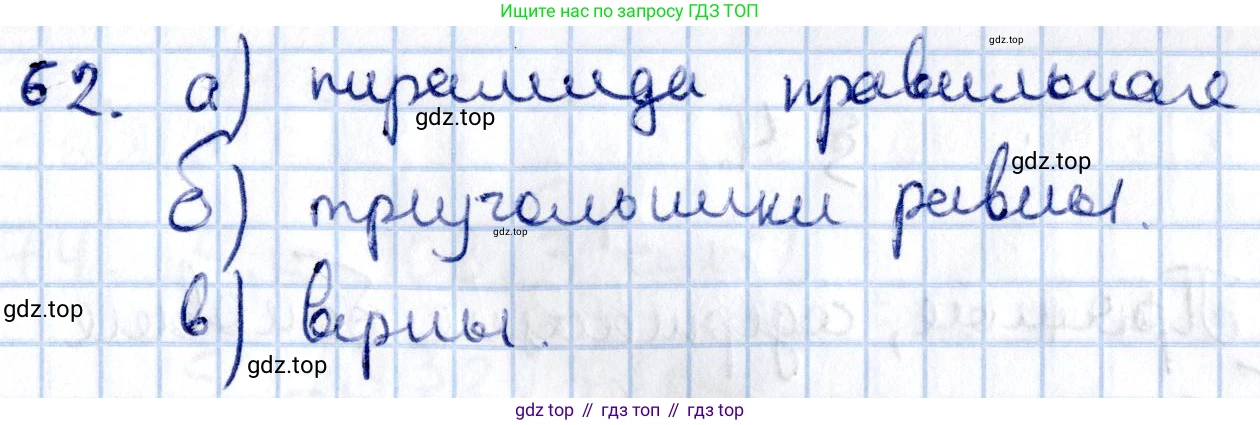 Ищите нас по запросу ГДЗ ТОП
gdz.top
62. а) пирамида правильная
gdz.top
gdz.top
б) треугольники равны.
gdz.top
в) верны.
gdz.top
gdz.top
gdz top // гдз топ // gdz.top